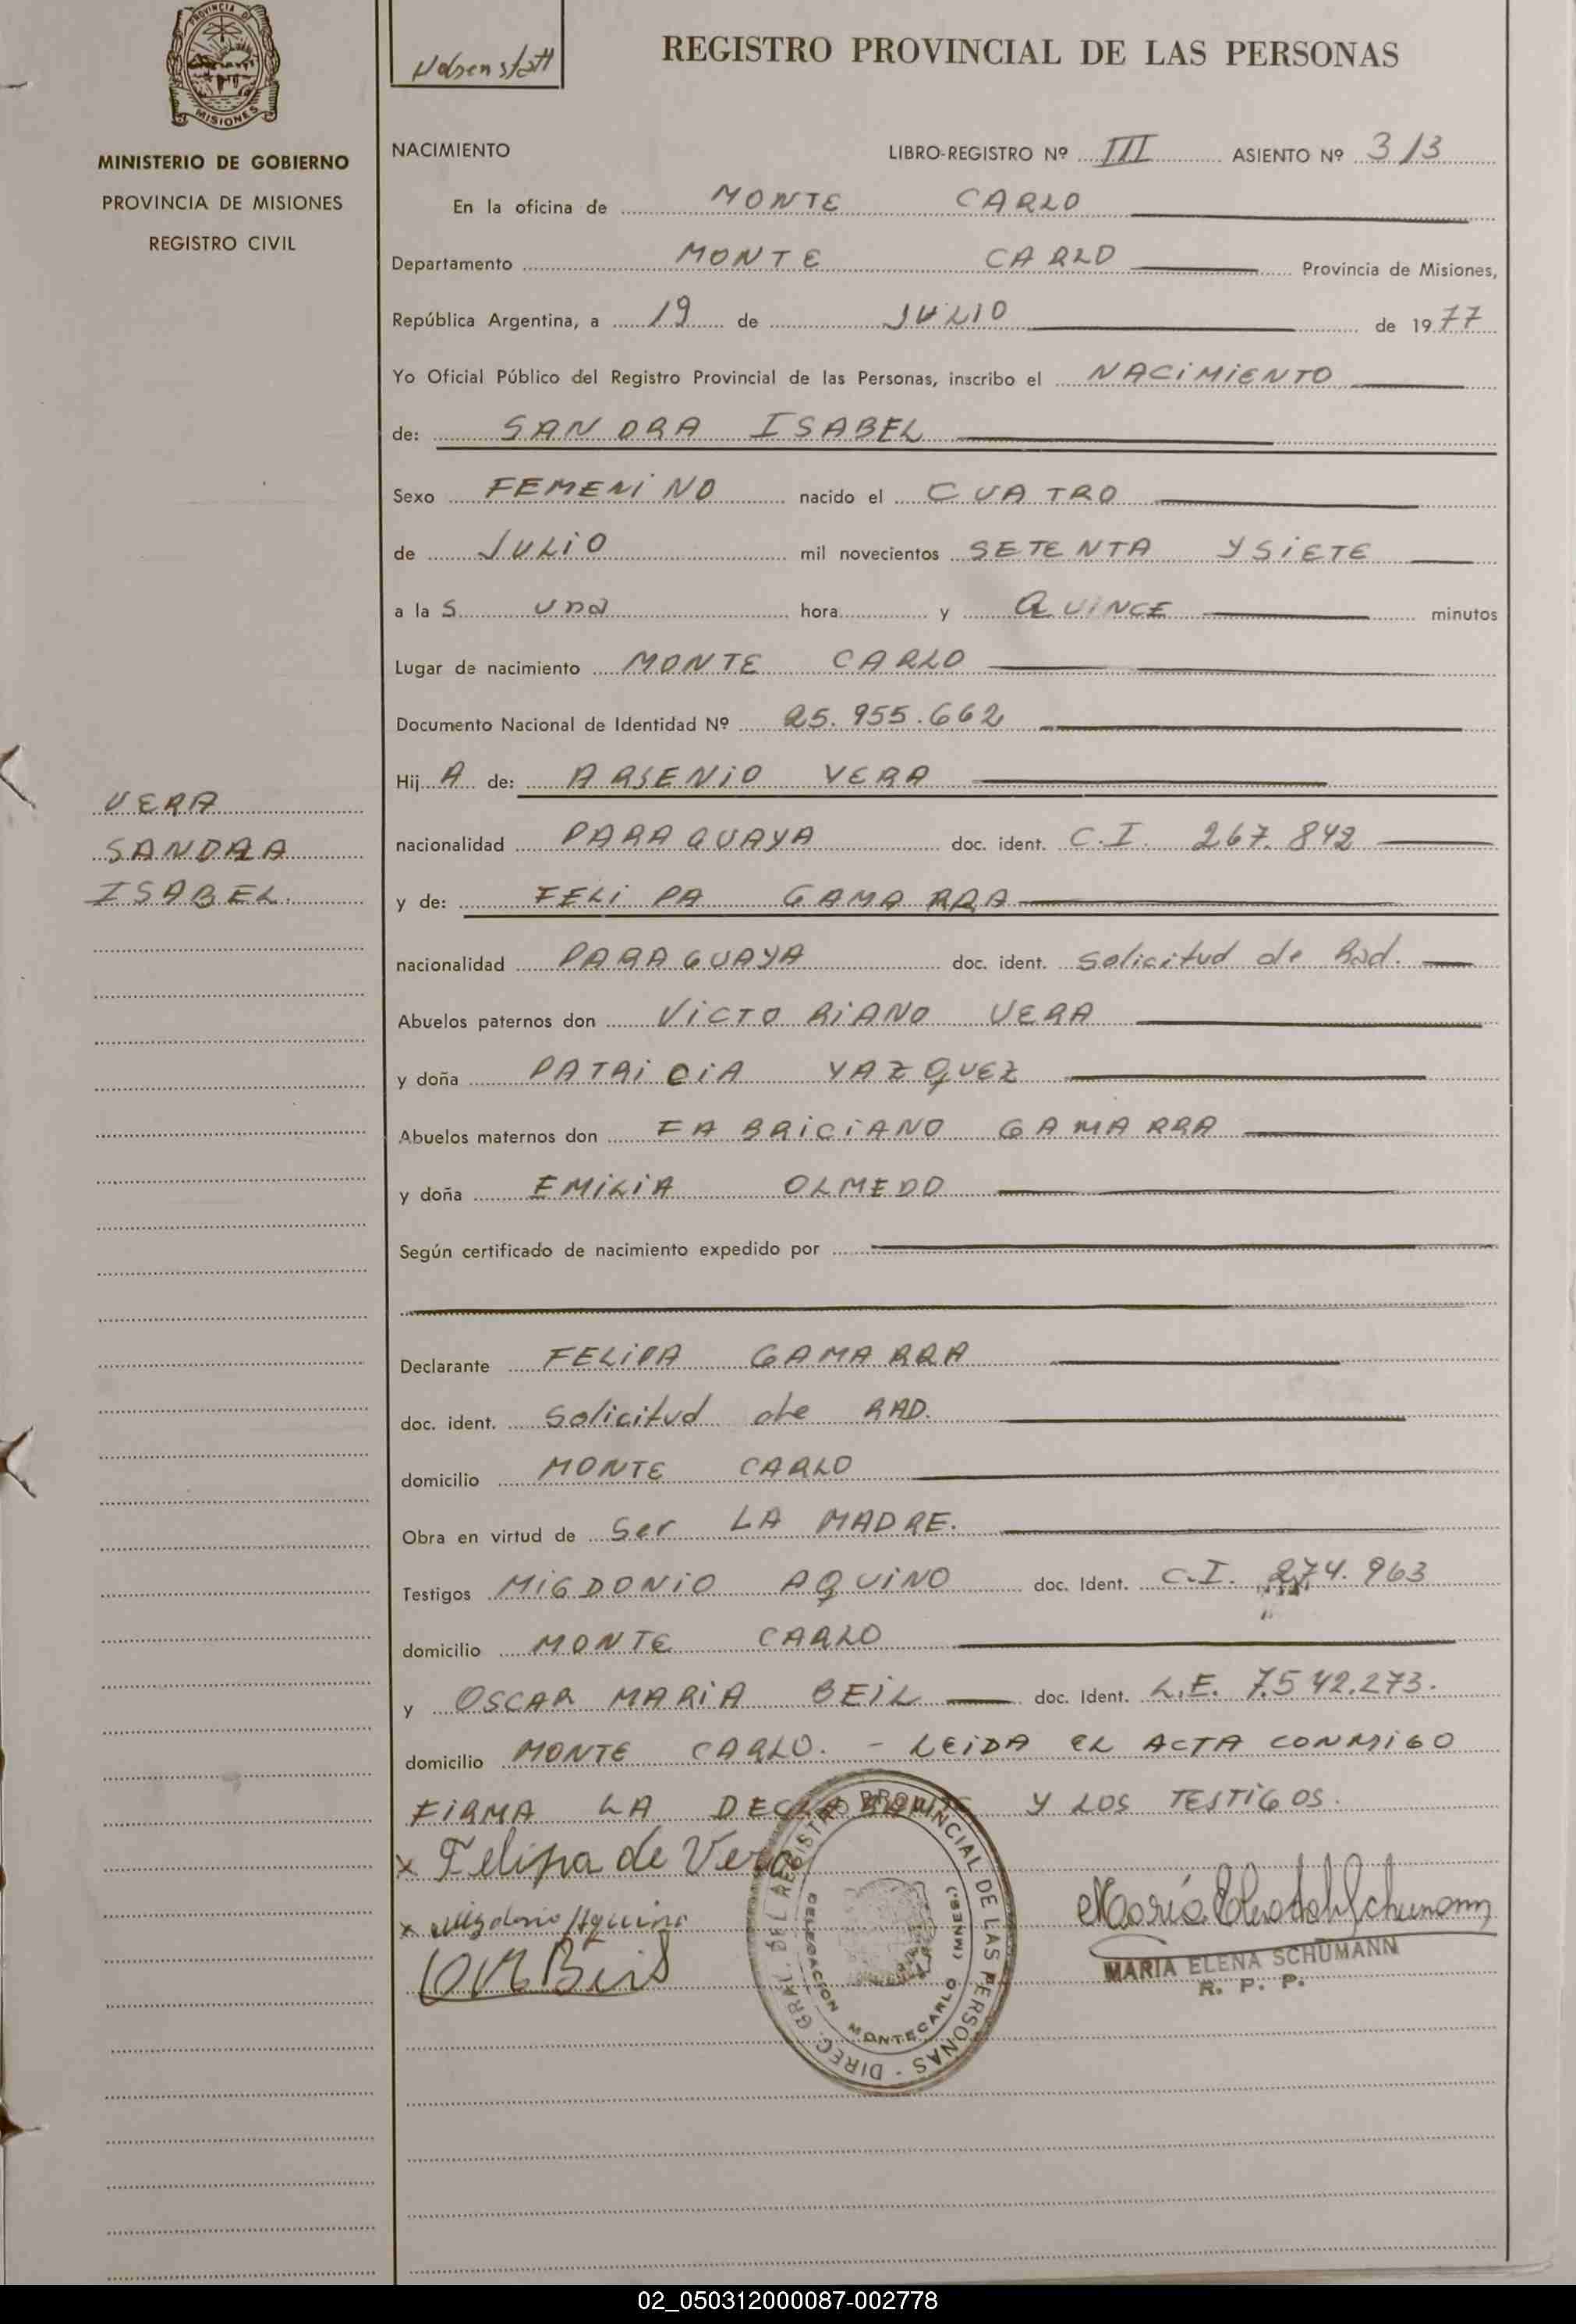 PROVINCIA DE
MISIONES
MINISTERIO DE GOBIERNO
PROVINCIA DE MISIONES
REGISTRO CIVIL
VERA
SANDRA
ISABEL.
REGISTRO PROVINCIAL DE LAS PERSONAS
NACIMIENTO LIBRO-REGISTRO Nº III ASIENTO Nº 313
En la oficina de MONTE CARLO
Departamento MONTE CARLO Provincia de Misiones,
República Argentina, a 19 de JULIO de 1977
Yo Oficial Público del Registro Provincial de las Personas, inscribo el NACIMIENTO
de: SANDRA ISABEL
Sexo FEMENINO nacido el CUATRO
de JULIO mil novecientos SETENTA Y SIETE
a la s una hora y QUINCE minutos
Lugar de nacimiento MONTE CARLO
Documento Nacional de Identidad Nº 25.955.662
Hij A de: ARSENIO VERA
nacionalidad PARAGUAYA doc. ident. C.I. 267.842
y de: FELIPA GAMARRA
nacionalidad PARAGUAYA doc. ident. Solicitud de Rad.
Abuelos paternos don VICTORIANO VERA
y doña PATRICIA VAZQUEZ
Abuelos maternos don FABRICIANO GAMARRA
y doña EMILIA OLMEDO
Según certificado de nacimiento expedido por
Declarante FELIPA GAMARRA
doc. ident. Solicitud de RAD.
domicilio MONTE CARLO
Obra en virtud de Ser LA MADRE.
Testigos MIGDONIO AQUINO doc. Ident. C.I. 274.963
domicilio MONTE CARLO
y OSCAR MARIA BEIL doc. Ident. L.E. 7.542.273.
domicilio MONTE CARLO. - LEIDA EL ACTA CONMIGO
FIRMA LA DECLARANTE Y LOS TESTIGOS.
x Felipa de Vera
x Migdonio Aquino
DIREC. GRAL. DEL REGISTRO PROVINCIAL DE LAS PERSONAS -
DELEGACION MONTECARLO (MNES.)
MARIA ELENA SCHÜMANN
R. P. P.
02_050312000087-002778